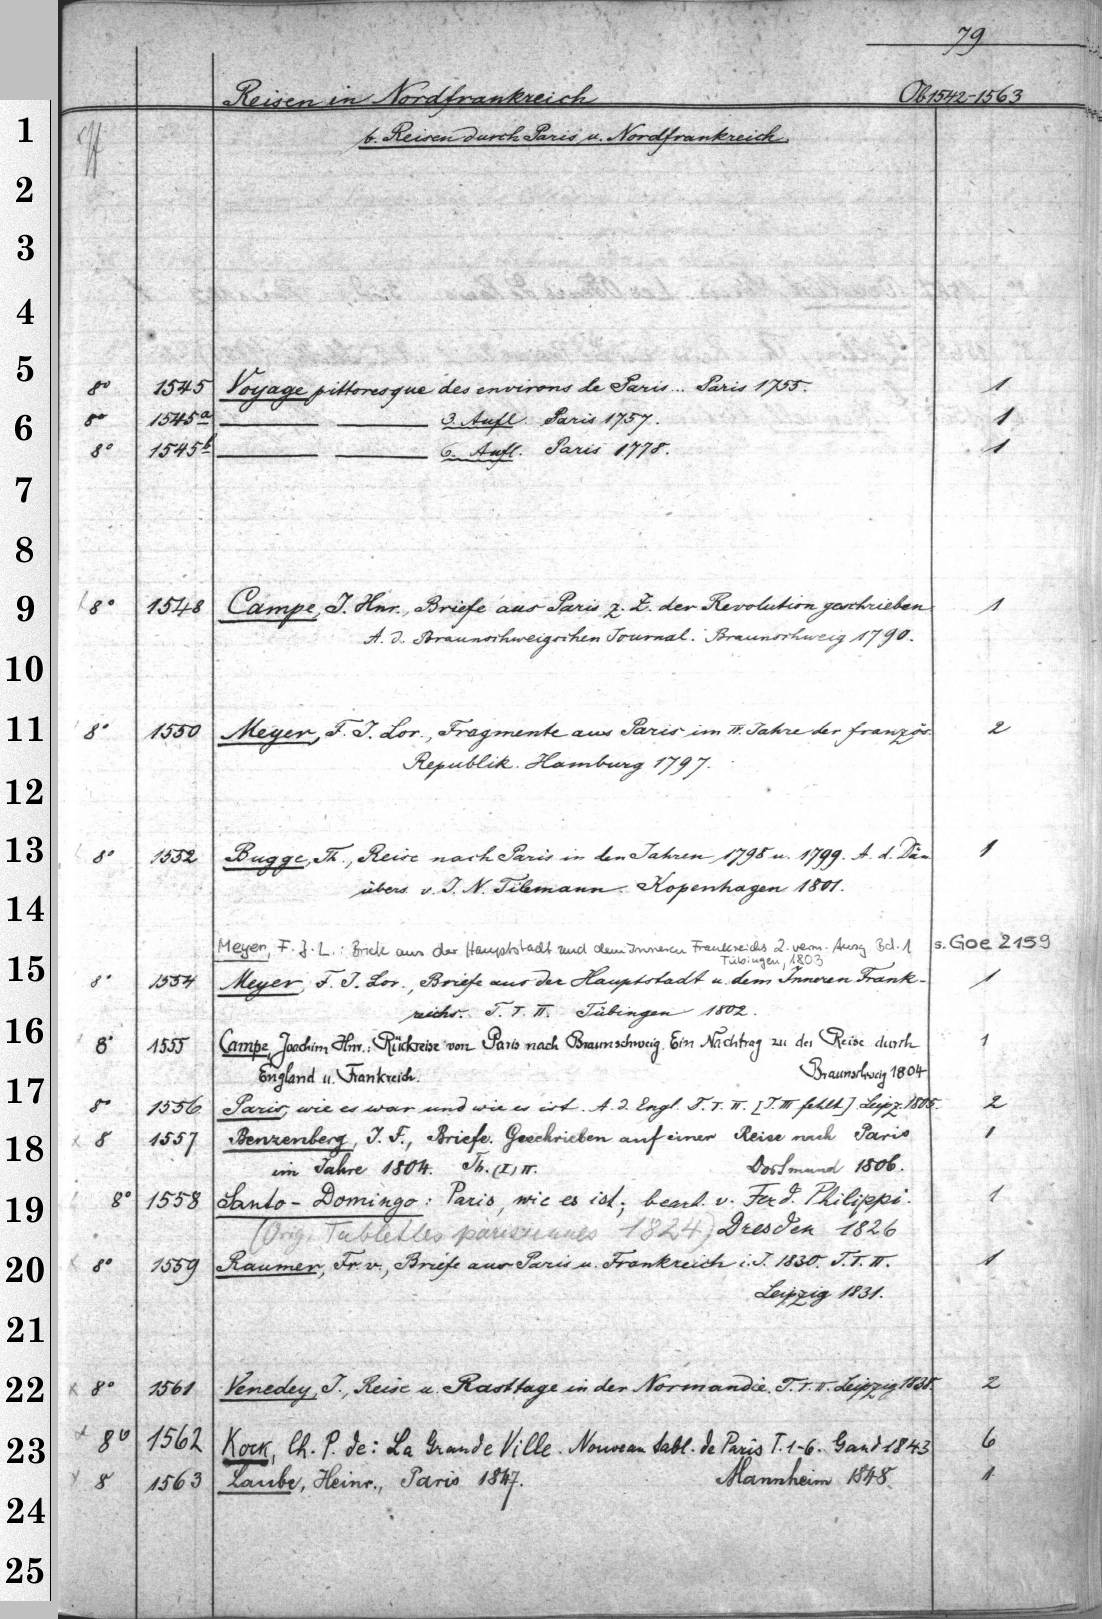 79
Reisen in Nordfrankreich Ob 1542-1563
b. Reisen durch Paris u. Nordfrankreich.
1
2
3
4
5
8° 1545 Voyage pittoresque des environs de Paris... Paris 1755. 1
6
8° 1545a 3. Aufl. Paris 1757. 1
8° 1545b 6. Aufl. Paris 1778. 1
7
8
9
8° 1548 Campe, J. Hnr., Briefe aus Paris z. Z. der Revolution geschrieben
1
A. d. Braunschweigschen Journal. Braunschweig 1790.
10
11
8° 1550 Meyer, F. J. Lor., Fragmente aus Paris im IV. Jahre der französ. 2
Republik. Hamburg 1797.
12
13
8° 1552 Bugge, Th., Reise nach Paris in den Jahren 1798 u. 1799. A. d. Dän 1
übers. v. J. N. Tilemann. Kopenhagen 1801.
14
Meyer, F. J. L.: Briefe aus der Hauptstadt und dem Inneren Frankreichs 2. verm. Ausg. Bd. 1 s. Goe 2159
Tübingen, 1803
15
8° 1554 Meyer, F. J. Lor., Briefe aus der Hauptstadt u. dem Inneren Frank- 1
reichs. T. I. II. Tübingen 1802.
16
8° 1555 Campe, Joachim Hnr.: Rückreise von Paris nach Braunschweig. Ein Nachtrag zu der Reise durch 1
England u. Frankreich. Braunschweig 1804
17
8° 1556 Paris, wie es war und wie es ist. A. d. Engl. T. I. II. [T. III fehlt] Leipz. 1805. 2
18
8 1557 Benzenberg, J. F., Briefe. Geschrieben auf einer Reise nach Paris 1
im Jahre 1804. Th. (I) II. Dortmund 1806.
19
8° 1558 Santo-Domingo: Paris, wie es ist; bearb. v. Ferd. Philippi. 1
(Orig. Tablettes parisiennes 1824) Dresden 1826
20
8° 1559 Raumer, Fr. v., Briefe aus Paris u. Frankreich i. J. 1830. T. I. II. 1
Leipzig 1831.
21
22
8° 1561 Venedey, J., Reise u. Rasttage in der Normandie. T. I. II. Leipzig 1838. 2
23
8° 1562 Kock, Ch. P. de: La Grande Ville. Nouveau tabl. de Paris T. 1-6. Gand 1843 6
8 1563 Laube, Heinr., Paris 1847. Mannheim 1848. 1
24
25